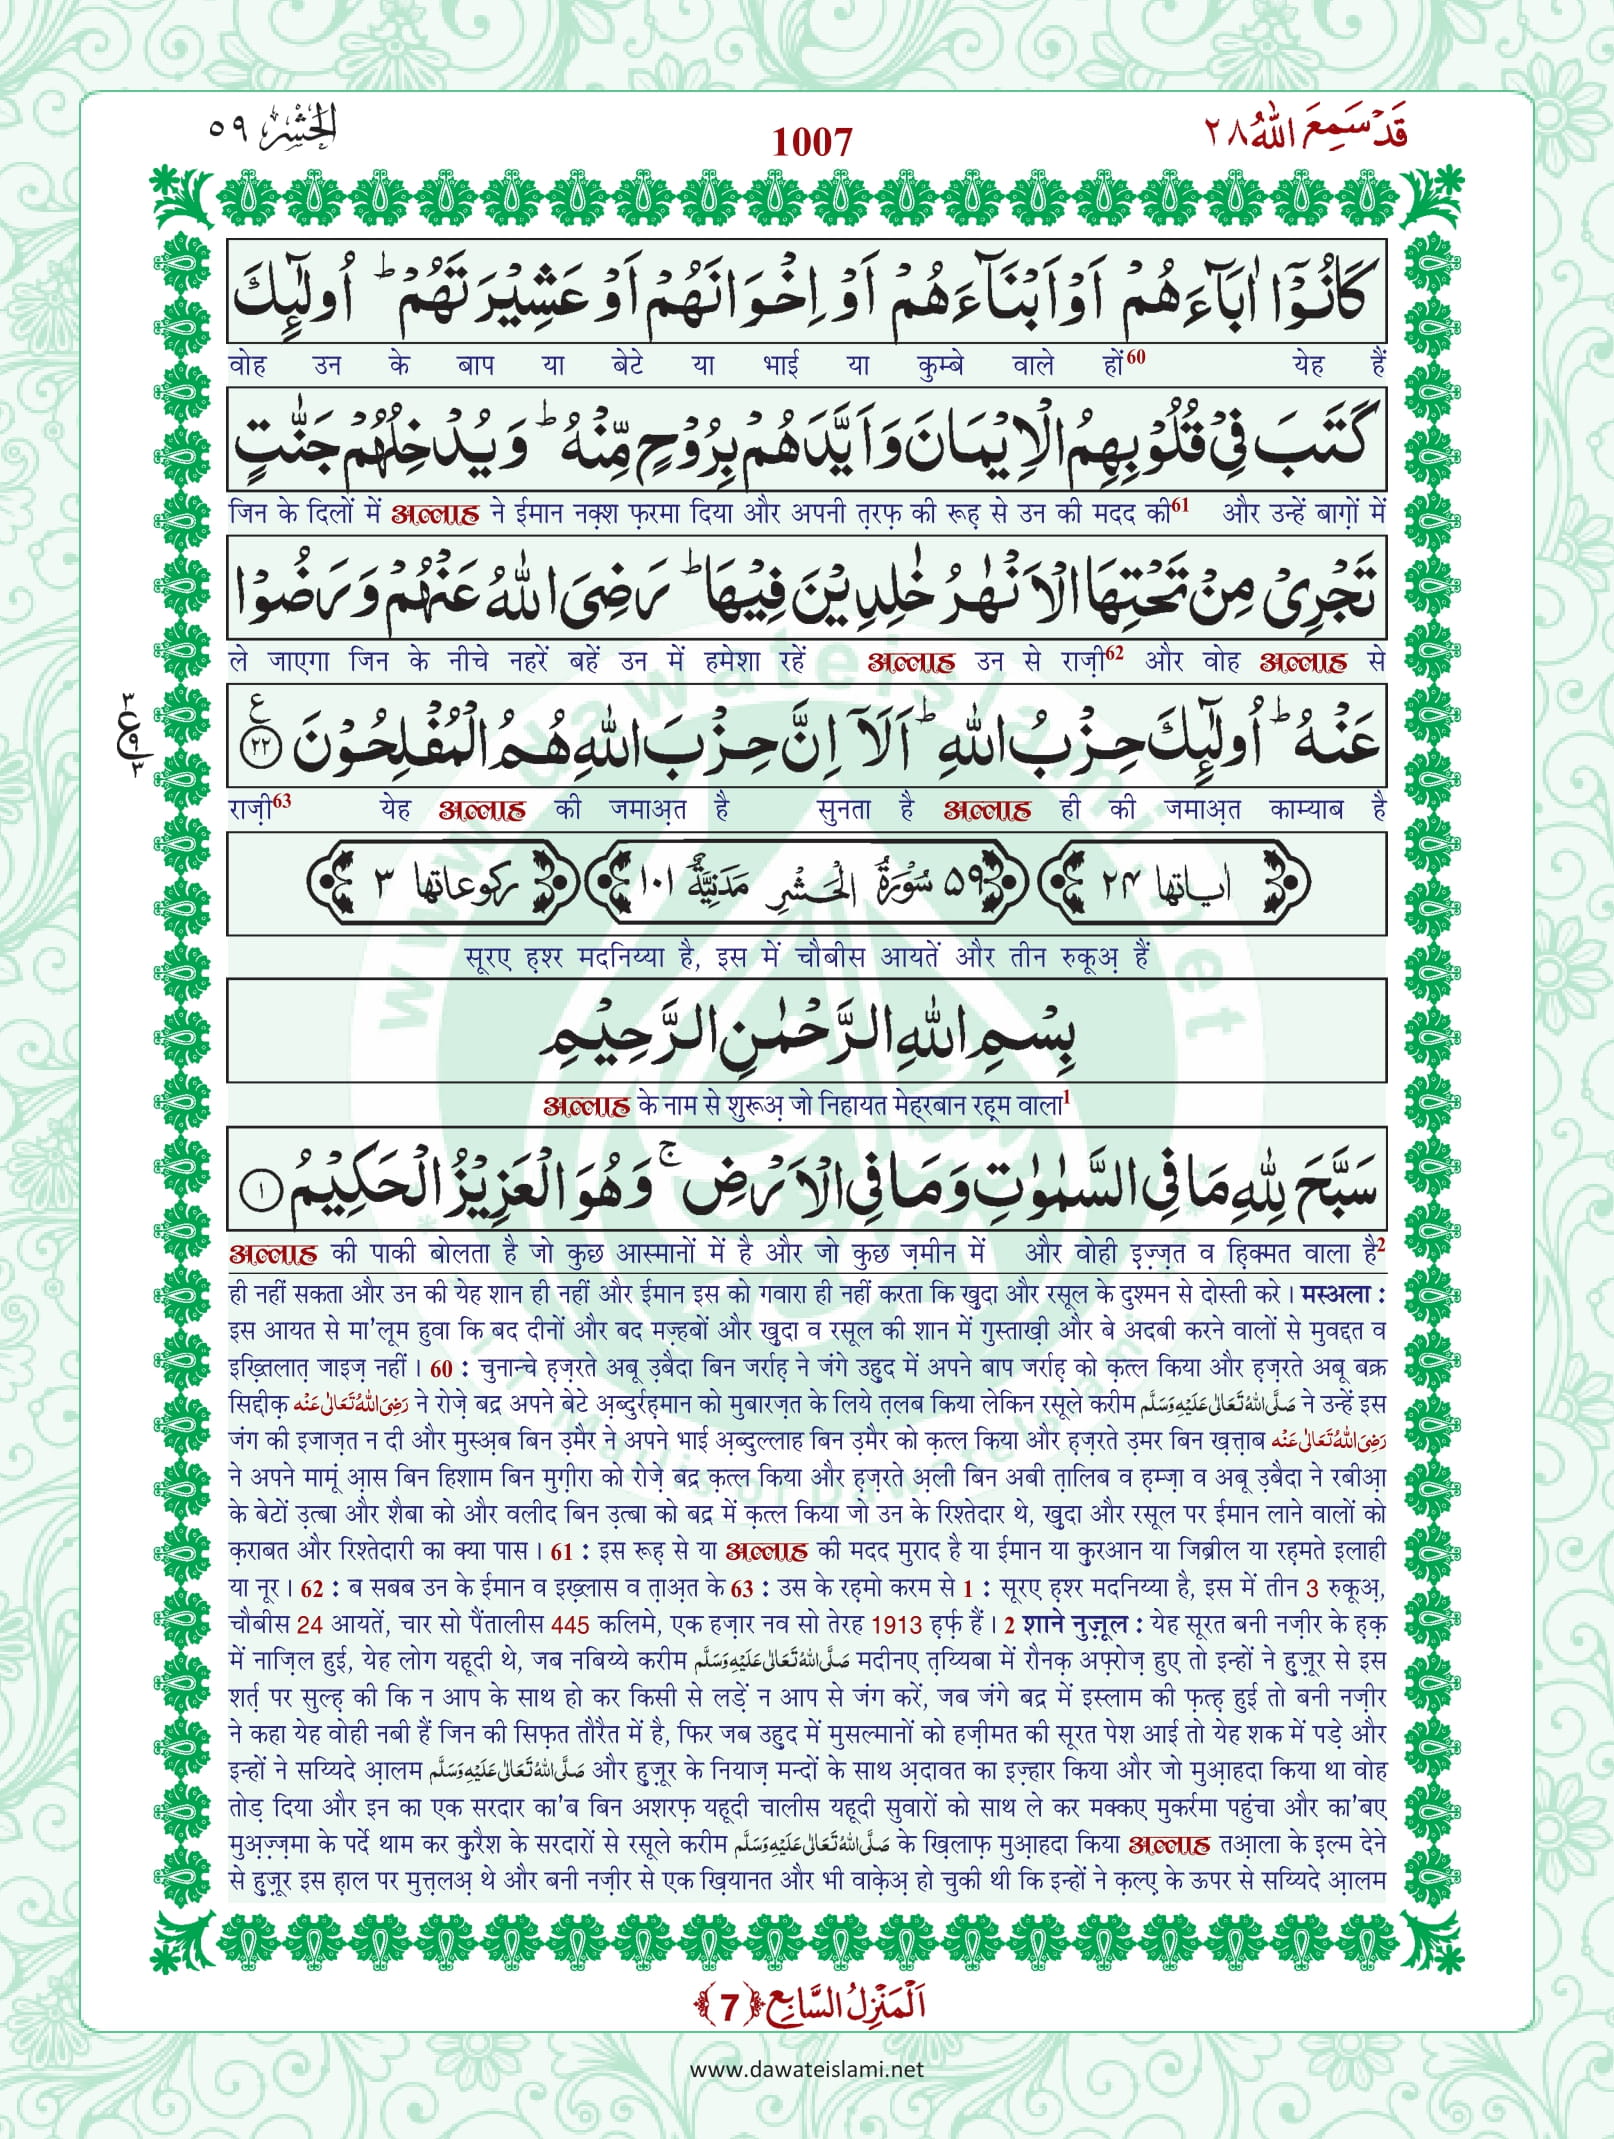 قَدْ سَمِعَ اللّٰهُ ٢٨
1007
الْحَشْر ٥٩
كَانُوْۤا اٰبَآءَهُمْ اَوْ اَبْنَآءَهُمْ اَوْ اِخْوَانَهُمْ اَوْ عَشِیْرَتَهُمْ ؕ اُولٰٓىِٕكَ
वोह उन के बाप या बेटे या भाई या कुम्बे वाले हों60 येह हैं
كَتَبَ فِیْ قُلُوْبِهِمُ الْاِیْمَانَ وَ اَیَّدَهُمْ بِرُوْحٍ مِّنْهُ ؕ وَ یُدْخِلُهُمْ جَنّٰتٍ
जिन के दिलों में अल्लाह ने ईमान नक़्श फ़रमा दिया और अपनी त़रफ़ की रूह़ से उन की मदद की61 और उन्हें बाग़ों में
تَجْرِیْ مِنْ تَحْتِهَا الْاَنْهٰرُ خٰلِدِیْنَ فِیْهَا ؕ رَضِیَ اللّٰهُ عَنْهُمْ وَ رَضُوْا
ले जाएगा जिन के नीचे नहरें बहें उन में हमेशा रहें अल्लाह उन से राज़ी62 और वोह अल्लाह से
عَنْهُ ؕ اُولٰٓىِٕكَ حِزْبُ اللّٰهِ ؕ اَلَاۤ اِنَّ حِزْبَ اللّٰهِ هُمُ الْمُفْلِحُوْنَ ۧ ٢٢
٣ ع ٩ ٣
राज़ी63 येह अल्लाह की जमाअ़त है सुनता है अल्लाह ही की जमाअ़त काम्याब है
اٰیاتها ٢٤ ٥٩ سُوْرَةُ الْحَشْرِ مَدَنِیَّةٌ ١٠١ رکوعاتها ٣
सूरए ह़श्र मदनिय्या है, इस में चौबीस आयतें और तीन रुकूअ़ हैं
بِسْمِ اللّٰهِ الرَّحْمٰنِ الرَّحِیْمِ
अल्लाह के नाम से शुरूअ़ जो निहायत मेहरबान रह़्म वाला1
سَبَّحَ لِلّٰهِ مَا فِی السَّمٰوٰتِ وَ مَا فِی الْاَرْضِ ۚ وَ هُوَ الْعَزِیْزُ الْحَكِیْمُ ١
अल्लाह की पाकी बोलता है जो कुछ आस्मानों में है और जो कुछ ज़मीन में और वोही इ़ज़्ज़त व ह़िक्मत वाला है2
ही नहीं सकता और उन की येह शान ही नहीं और ईमान इस को गवारा ही नहीं करता कि ख़ुदा और रसूल के दुश्मन से दोस्ती करे। मस्अला :
इस आयत से मा'लूम हुवा कि बद दीनों और बद मज़्हबों और ख़ुदा व रसूल की शान में गुस्ताख़ी और बे अदबी करने वालों से मुवद्दत व
इख़्तिलात़ जाइज़ नहीं। 60 : चुनान्चे ह़ज़रते अबू उ़बैदा बिन जर्राह़ ने जंगे उहुद में अपने बाप जर्राह़ को क़त्ल किया और ह़ज़रते अबू बक्र
सिद्दीक़ رَضِیَ اللّٰهُ تَعَالٰی عَنْه ने रोज़े बद्र अपने बेटे अ़ब्दुर्रह़मान को मुबारज़त के लिये त़लब किया लेकिन रसूले करीम صَلَّی اللّٰهُ تَعَالٰی عَلَیْهِ وَسَلَّم ने उन्हें इस
जंग की इजाज़त न दी और मुस्अ़ब बिन उ़मैर ने अपने भाई अ़ब्दुल्लाह बिन उ़मैर को क़त्ल किया और ह़ज़रते उ़मर बिन ख़त़्त़ाब رَضِیَ اللّٰهُ تَعَالٰی عَنْه
ने अपने मामूं आ़स बिन हिशाम बिन मुग़ीरा को रोज़े बद्र क़त्ल किया और ह़ज़रते अ़ली बिन अबी त़ालिब व ह़म्ज़ा व अबू उ़बैदा ने रबीआ़
के बेटों उ़त्बा और शैबा को और वलीद बिन उ़त्बा को बद्र में क़त्ल किया जो उन के रिश्तेदार थे, ख़ुदा और रसूल पर ईमान लाने वालों को
क़राबत और रिश्तेदारी का क्या पास। 61 : इस रूह़ से या अल्लाह की मदद मुराद है या ईमान या क़ुरआन या जिब्रील या रह़मते इलाही
या नूर। 62 : ब सबब उन के ईमान व इख़्लास व त़ाअ़त के 63 : उस के रह़मो करम से 1 : सूरए ह़श्र मदनिय्या है, इस में तीन 3 रुकूअ़,
चौबीस 24 आयतें, चार सो पैंतालीस 445 कलिमे, एक हज़ार नव सो तेरह 1913 ह़र्फ़ हैं। 2 शाने नुज़ूल : येह सूरत बनी नज़ीर के ह़क़
में नाज़िल हुई, येह लोग यहूदी थे, जब नबिय्ये करीम صَلَّی اللّٰهُ تَعَالٰی عَلَیْهِ وَسَلَّم मदीनए त़य्यिबा में रौनक़ अफ़्रोज़ हुए तो इन्हों ने हुज़ूर से इस
शर्त़ पर सुल्ह़ की कि न आप के साथ हो कर किसी से लड़ें न आप से जंग करें, जब जंगे बद्र में इस्लाम की फ़त्ह़ हुई तो बनी नज़ीर
ने कहा येह वोही नबी हैं जिन की सिफ़त तौरैत में है, फिर जब उहुद में मुसल्मानों को हज़ीमत की सूरत पेश आई तो येह शक में पड़े और
इन्हों ने सय्यिदे आ़लम صَلَّی اللّٰهُ تَعَالٰی عَلَیْهِ وَسَلَّم और हुज़ूर के नियाज़ मन्दों के साथ अ़दावत का इज़्हार किया और जो मुआ़हदा किया था वोह
तोड़ दिया और इन का एक सरदार का'ब बिन अशरफ़ यहूदी चालीस यहूदी सुवारों को साथ ले कर मक्कए मुकर्रमा पहुंचा और का'बए
मुअ़ज़्ज़मा के पर्दे थाम कर क़ुरैश के सरदारों से रसूले करीम صَلَّی اللّٰهُ تَعَالٰی عَلَیْهِ وَسَلَّم के ख़िलाफ़ मुआ़हदा किया अल्लाह तआ़ला के इल्म देने
से हुज़ूर इस ह़ाल पर मुत़्त़लअ़ थे और बनी नज़ीर से एक ख़ियानत और भी वाक़ेअ़ हो चुकी थी कि इन्हों ने क़ल्ए के ऊपर से सय्यिदे आ़लम
اَلْمَنْزِلُ السَّابِع ﴿7﴾
www.dawateislami.net